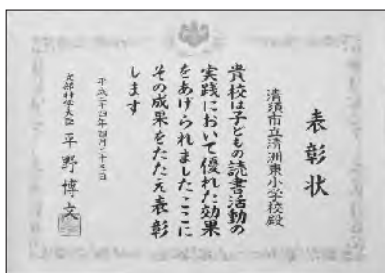 表彰状
清須市立清洲東小学校殿
貴校は子どもの読書活動の
実践において優れた効果
をあげられましたここに
その成果をたたえ表彰
します
平成二十四年四月二十三日
文部科学大臣 平野博文